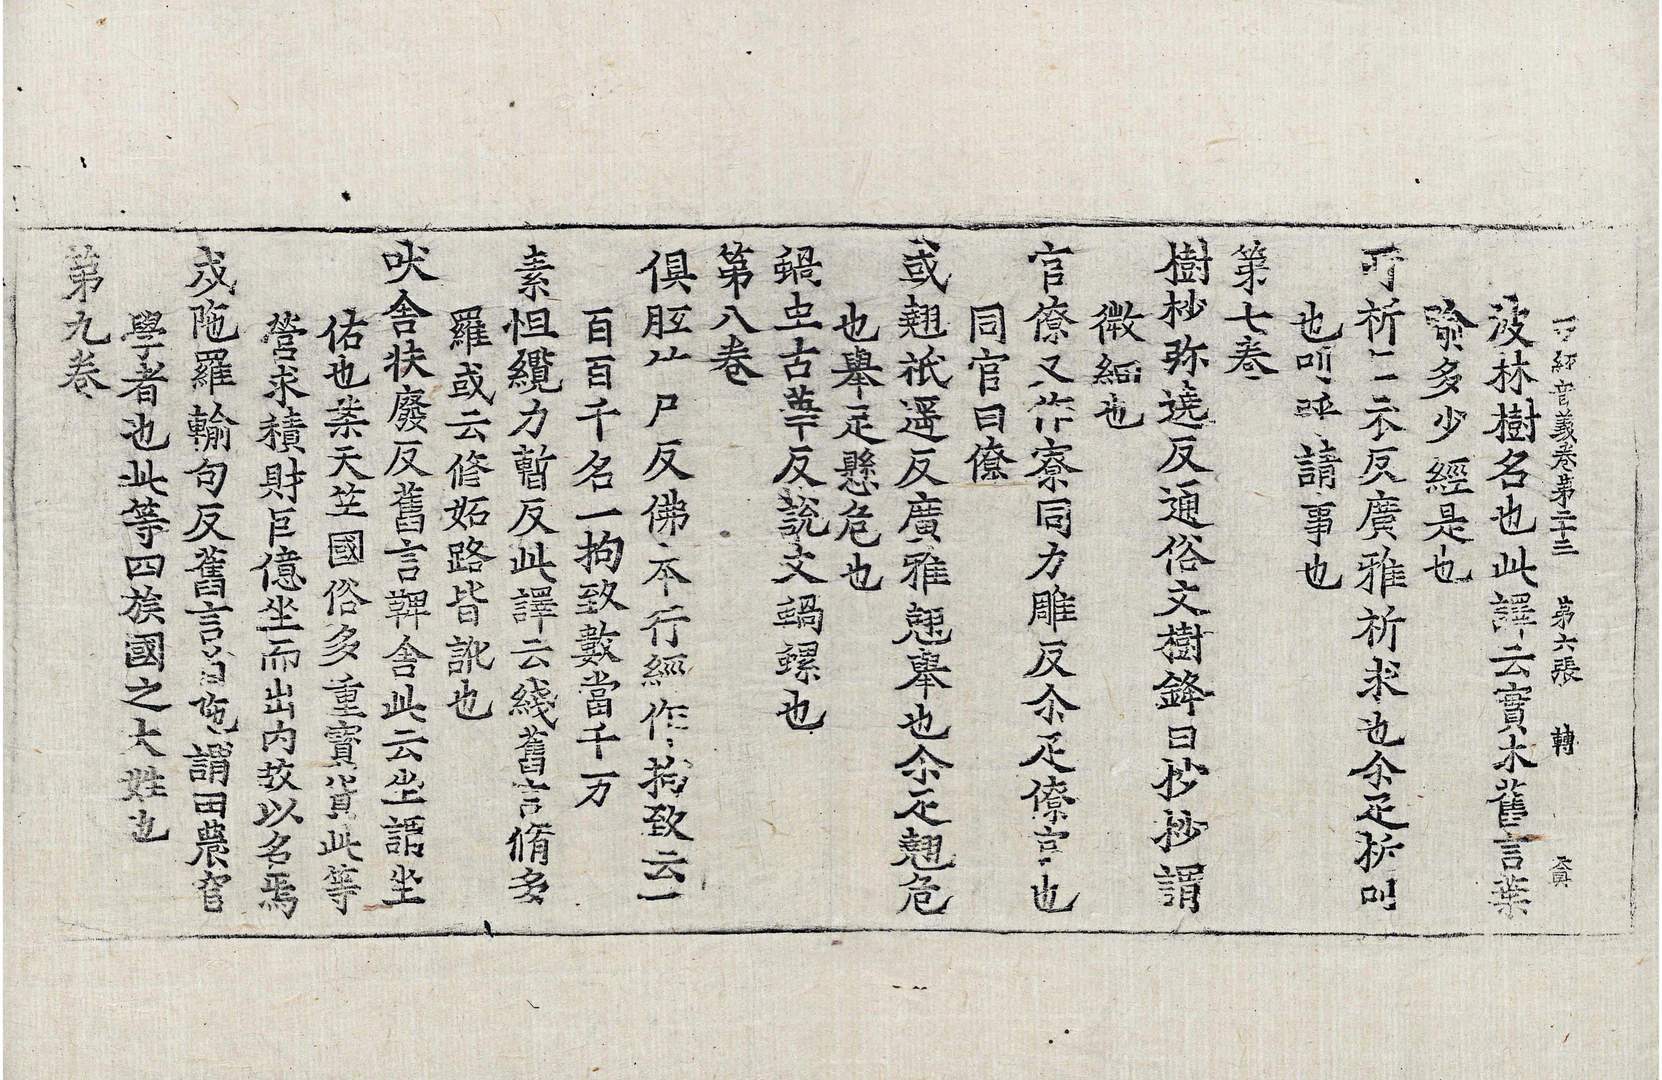 一切經音義卷第二十三 第六張 轉
波林樹名也此譯云實木舊言葉
喩多少經是也
所祈二二衣反廣雅祈求也尒疋祈叫
也叫亦請事也
第七卷
樹杪弥遶反通俗文樹鋒曰杪杪謂
微緬也
官僚又作寮同力雕反尒疋僚官也
同官曰僚
或翹祇遥反廣雅翹舉也尒疋翹危
也舉足懸危也
蝸虫古華反說文蝸螺也
第八卷
俱胝竹尸反佛本行經作拘致云一
百百千名一拘致數當千万
素怛纜力暫反此譯云綫舊言脩多
羅或云修妬路皆訛也
吠舍扶廢反舊言鞞舍此云坐語坐
佑也案天竺國俗多重寳貨此等
營求積財巨億坐而出內故以名焉
戍陁羅輸句反舊言首陁謂田農官
學者也此等四族國之大姓也
第九卷